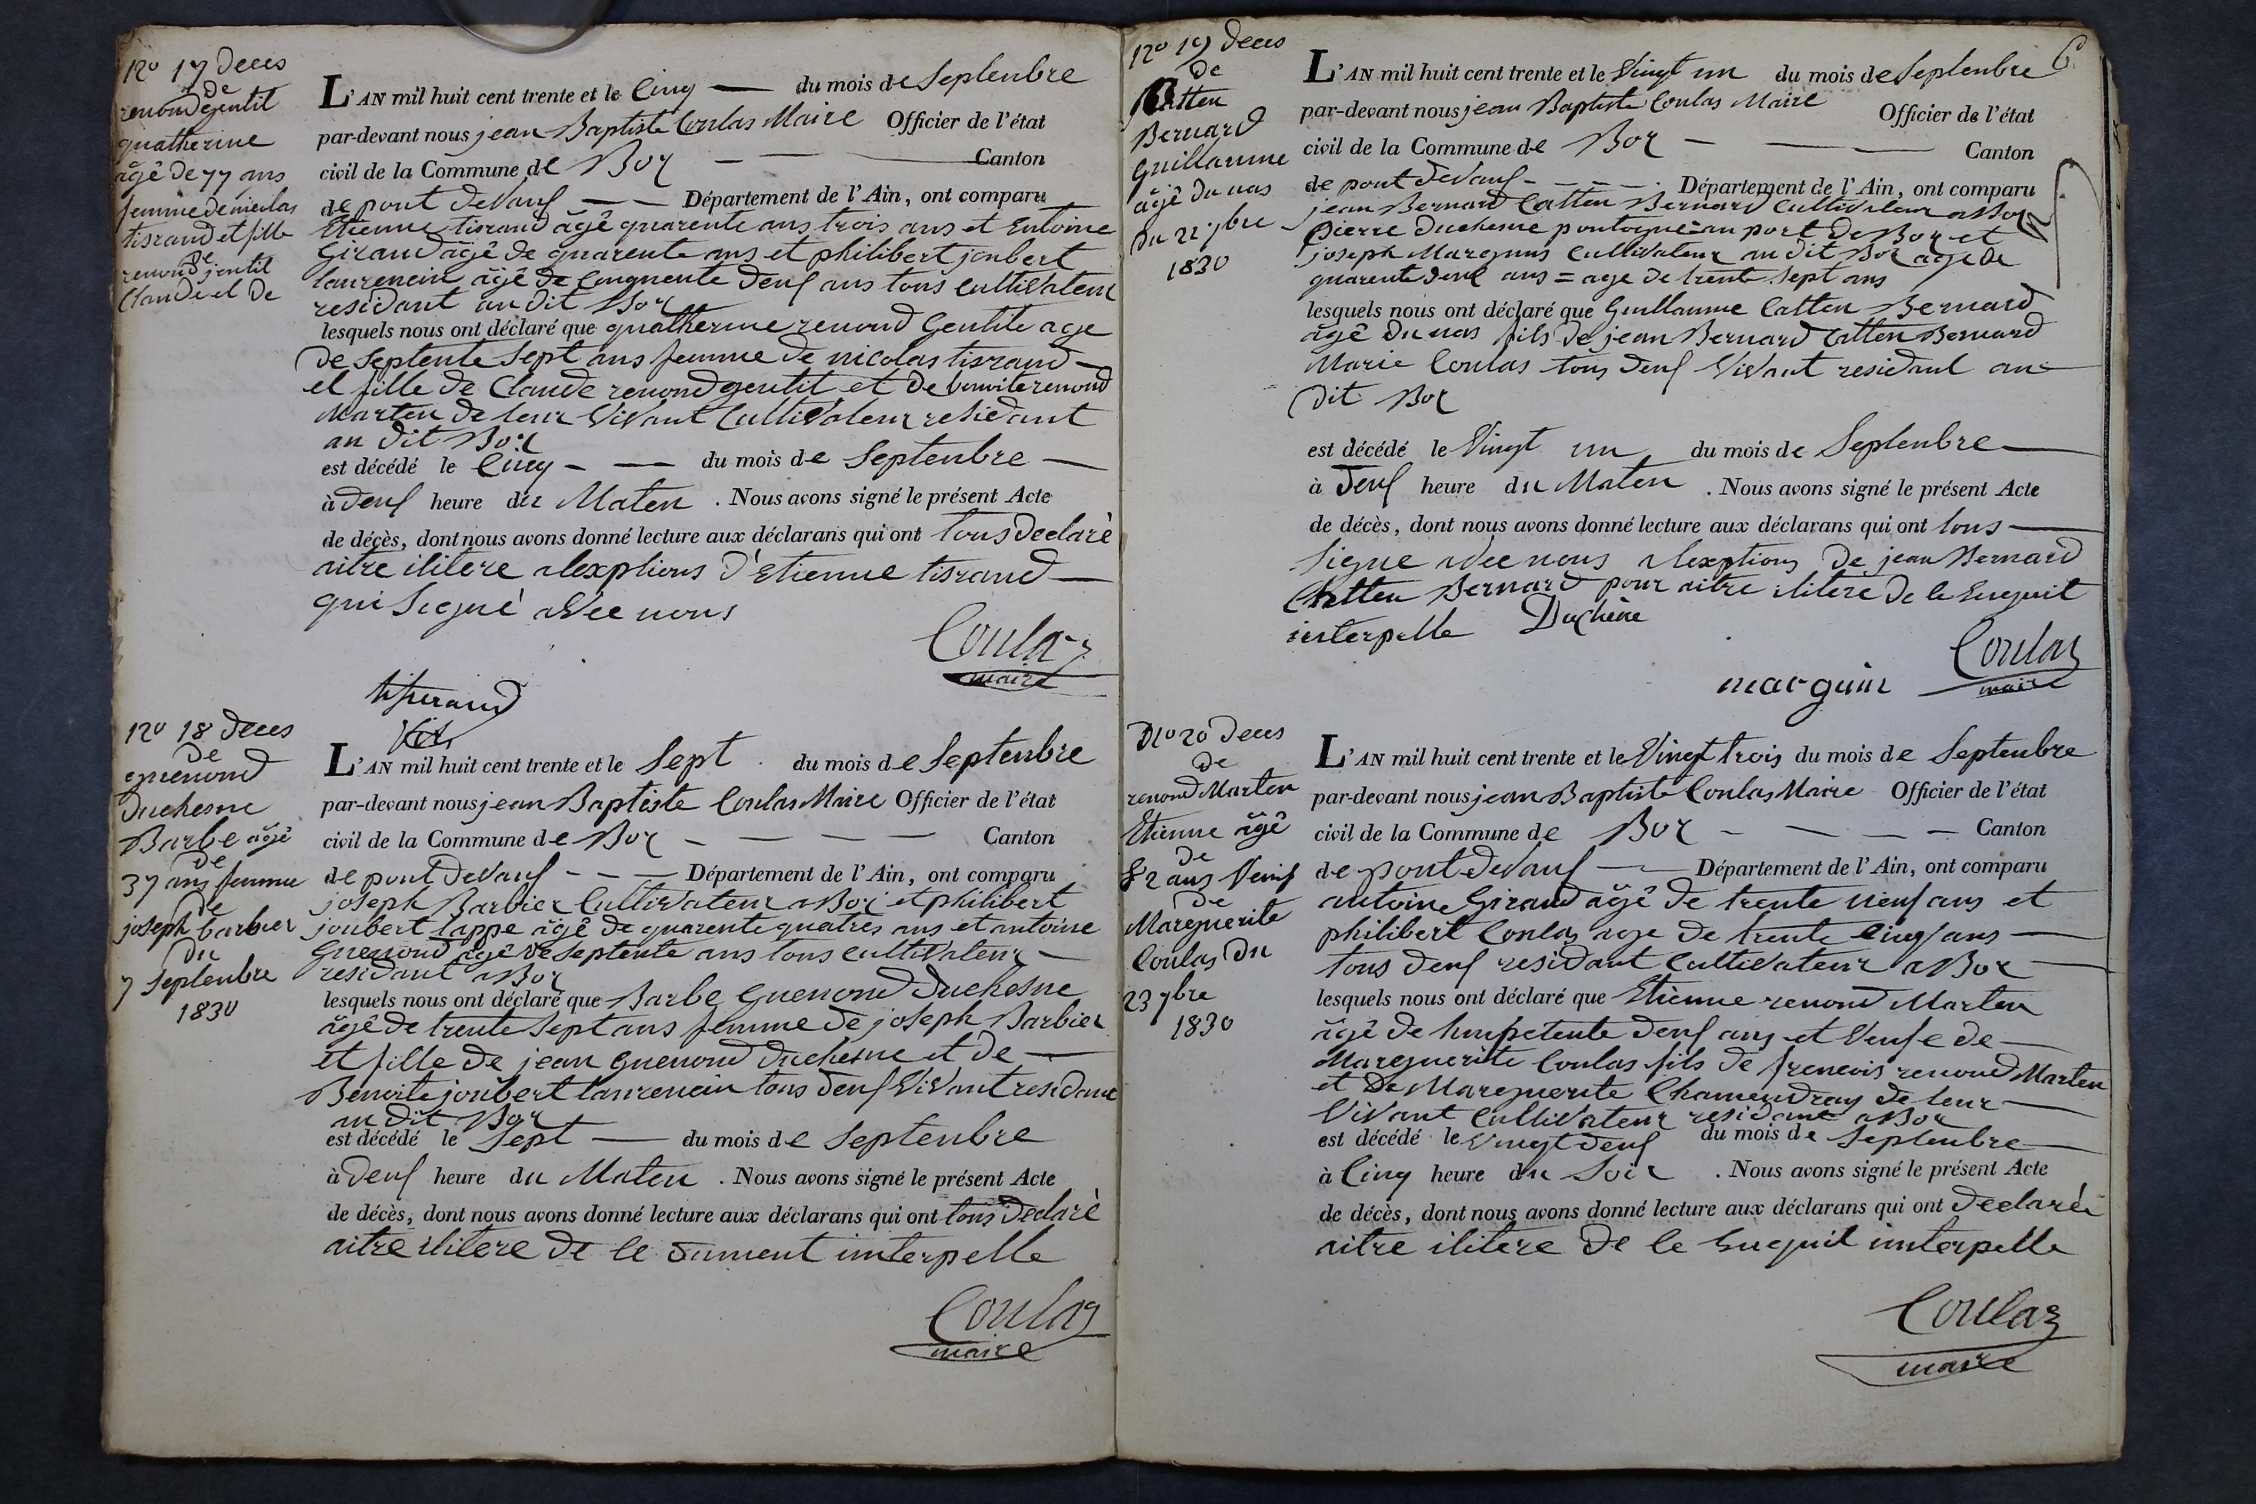 no 17 Deces
de
renond gentil
quatherine
âgê de 77 ans
femme de nicolas
tisrand et fille
de
renond jentil
Claude et de
L'AN mil huit cent trente et le Cinq — du mois de Septenbre
par-devant nous jean Baptiste Coulas Maire Officier de l'état
civil de la Commune de Boz — — Canton
de pont deVauf — — Département de l'Ain, ont comparu
Etienne tisrand âgê quarente ans trois ans et Entoine
Giraud âgê de quarente ans et philibert joubert
laurencin âgê de Cenquente deuf ans tous cultivateur
residant au dit Boz
lesquels nous ont déclaré que quatherine renond Gentile age
de Septente Sept ans femme de nicolas tisrand —
et fille de Claude renond gentil et de benoite renond
Marten de leur ViVant CultiVateur residant
au dit Boz
est décédé le Cinq — — du mois de Septenbre —
à deuf heure du Maten . Nous avons signé le présent Acte
de décès, dont nous avons donné lecture aux déclarans qui ont tous declarè
aitre ilitere alexptions d'Etienne tisrand —
qui Signè aVec nous
Coulas
maire
tisserand
no 18 Deces
de
guenond
Duchesne
Barbe âgê
de
37 ans femme
de
joseph barbier
du
7 Septenbre
1830
L'AN mil huit cent trente et le Sept . du mois de Septenbre
par-devant nous jean Baptiste Coulas Maire Officier de l'état
civil de la Commune de Boz — — — — Canton
de pont deVauf - - — Département de l'Ain, ont comparu
joseph Barbier CultiVateur a Boz et philibert
joubert lappe âgê de quarente quatres ans et antoine
Guenond âgê de Septente ans tous cultiVateur —
residant a Boz
lesquels nous ont déclaré que Barbe Guenond Duchesne
âgê de trente Sept ans femme de joseph Barbier
et fille de jean guenond duchesne et de —
Benoite joubert laurencin tous deuf ViVant residant
au dit Boz
est décédé le Sept — du mois de Septenbre
à deuf heure du Maten . Nous avons signé le présent Acte
de décès, dont nous avons donné lecture aux déclarans qui ont tous Declarè
aitre ilitere de le dument imterpelle
Coulas
maire
6
no 19 Deces
de
Catten
Bernard
Guillaume
âgê du nas
du 21 7bre
1830
L'AN mil huit cent trente et le Vingt un du mois de Septenbre
par-devant nous jean Baptiste Coulas Maire Officier de l'état
civil de la Commune de Boz — — Canton
de pont deVauf - - — - Département de l'Ain, ont comparu
jean Bernard Catten Bernard CultiVateur a Boz
pierre duchesne au port de Boz et
joseph Marguins CultiVateur au dit Boz age de
quarente deuf ans = age de trente Sept ans
lesquels nous ont déclaré que Guillaume Catten Bernard
âgê du nas fils de jean Bernard Catten Bernard
Marie Coulas tous deuf ViVant residant au
dit Boz
est décédé le Vingt un du mois de Septenbre —
à deuf heure du Maten . Nous avons signé le présent Acte
de décès, dont nous avons donné lecture aux déclarans qui ont tous —
Signe aVec nous alexptions de jean Bernard
Catten Bernard pour aitre ilitere de le Enquit
interpelle Duchêne
Coulas
marguin maire
no 20 Deces
de
renond Marten
Etienne âgê
de
82 ans Veuf
de
Marguerite
Coulas du
23 7bre
1830
L'AN mil huit cent trente et le Vingt trois du mois de Septenbre
par-devant nous jean Baptiste Coulas Maire Officier de l'état
civil de la Commune de Boz - — — — Canton
de pont deVauf — Département de l'Ain, ont comparu
antoine Giraud âgê de trente neuf ans et
philibert Coulas age de trente Cinq ans —
tous deuf residant CultiVateur a Boz —
lesquels nous ont déclaré que Etienne renond Marten
âgê de deuf ans et Veufe de —
Marguerite Coulas fils de frencois renond Marten
et de Marguerite Chamendray de leur —
ViVant CultiVateur residant a Boz
est décédé le Vingt deuf du mois de Septenbre —
à Cinq heure du Soir . Nous avons signé le présent Acte
de décès, dont nous avons donné lecture aux déclarans qui ont declarèr
aitre ilitere de le Enquit imterpelle
Coulas
maire